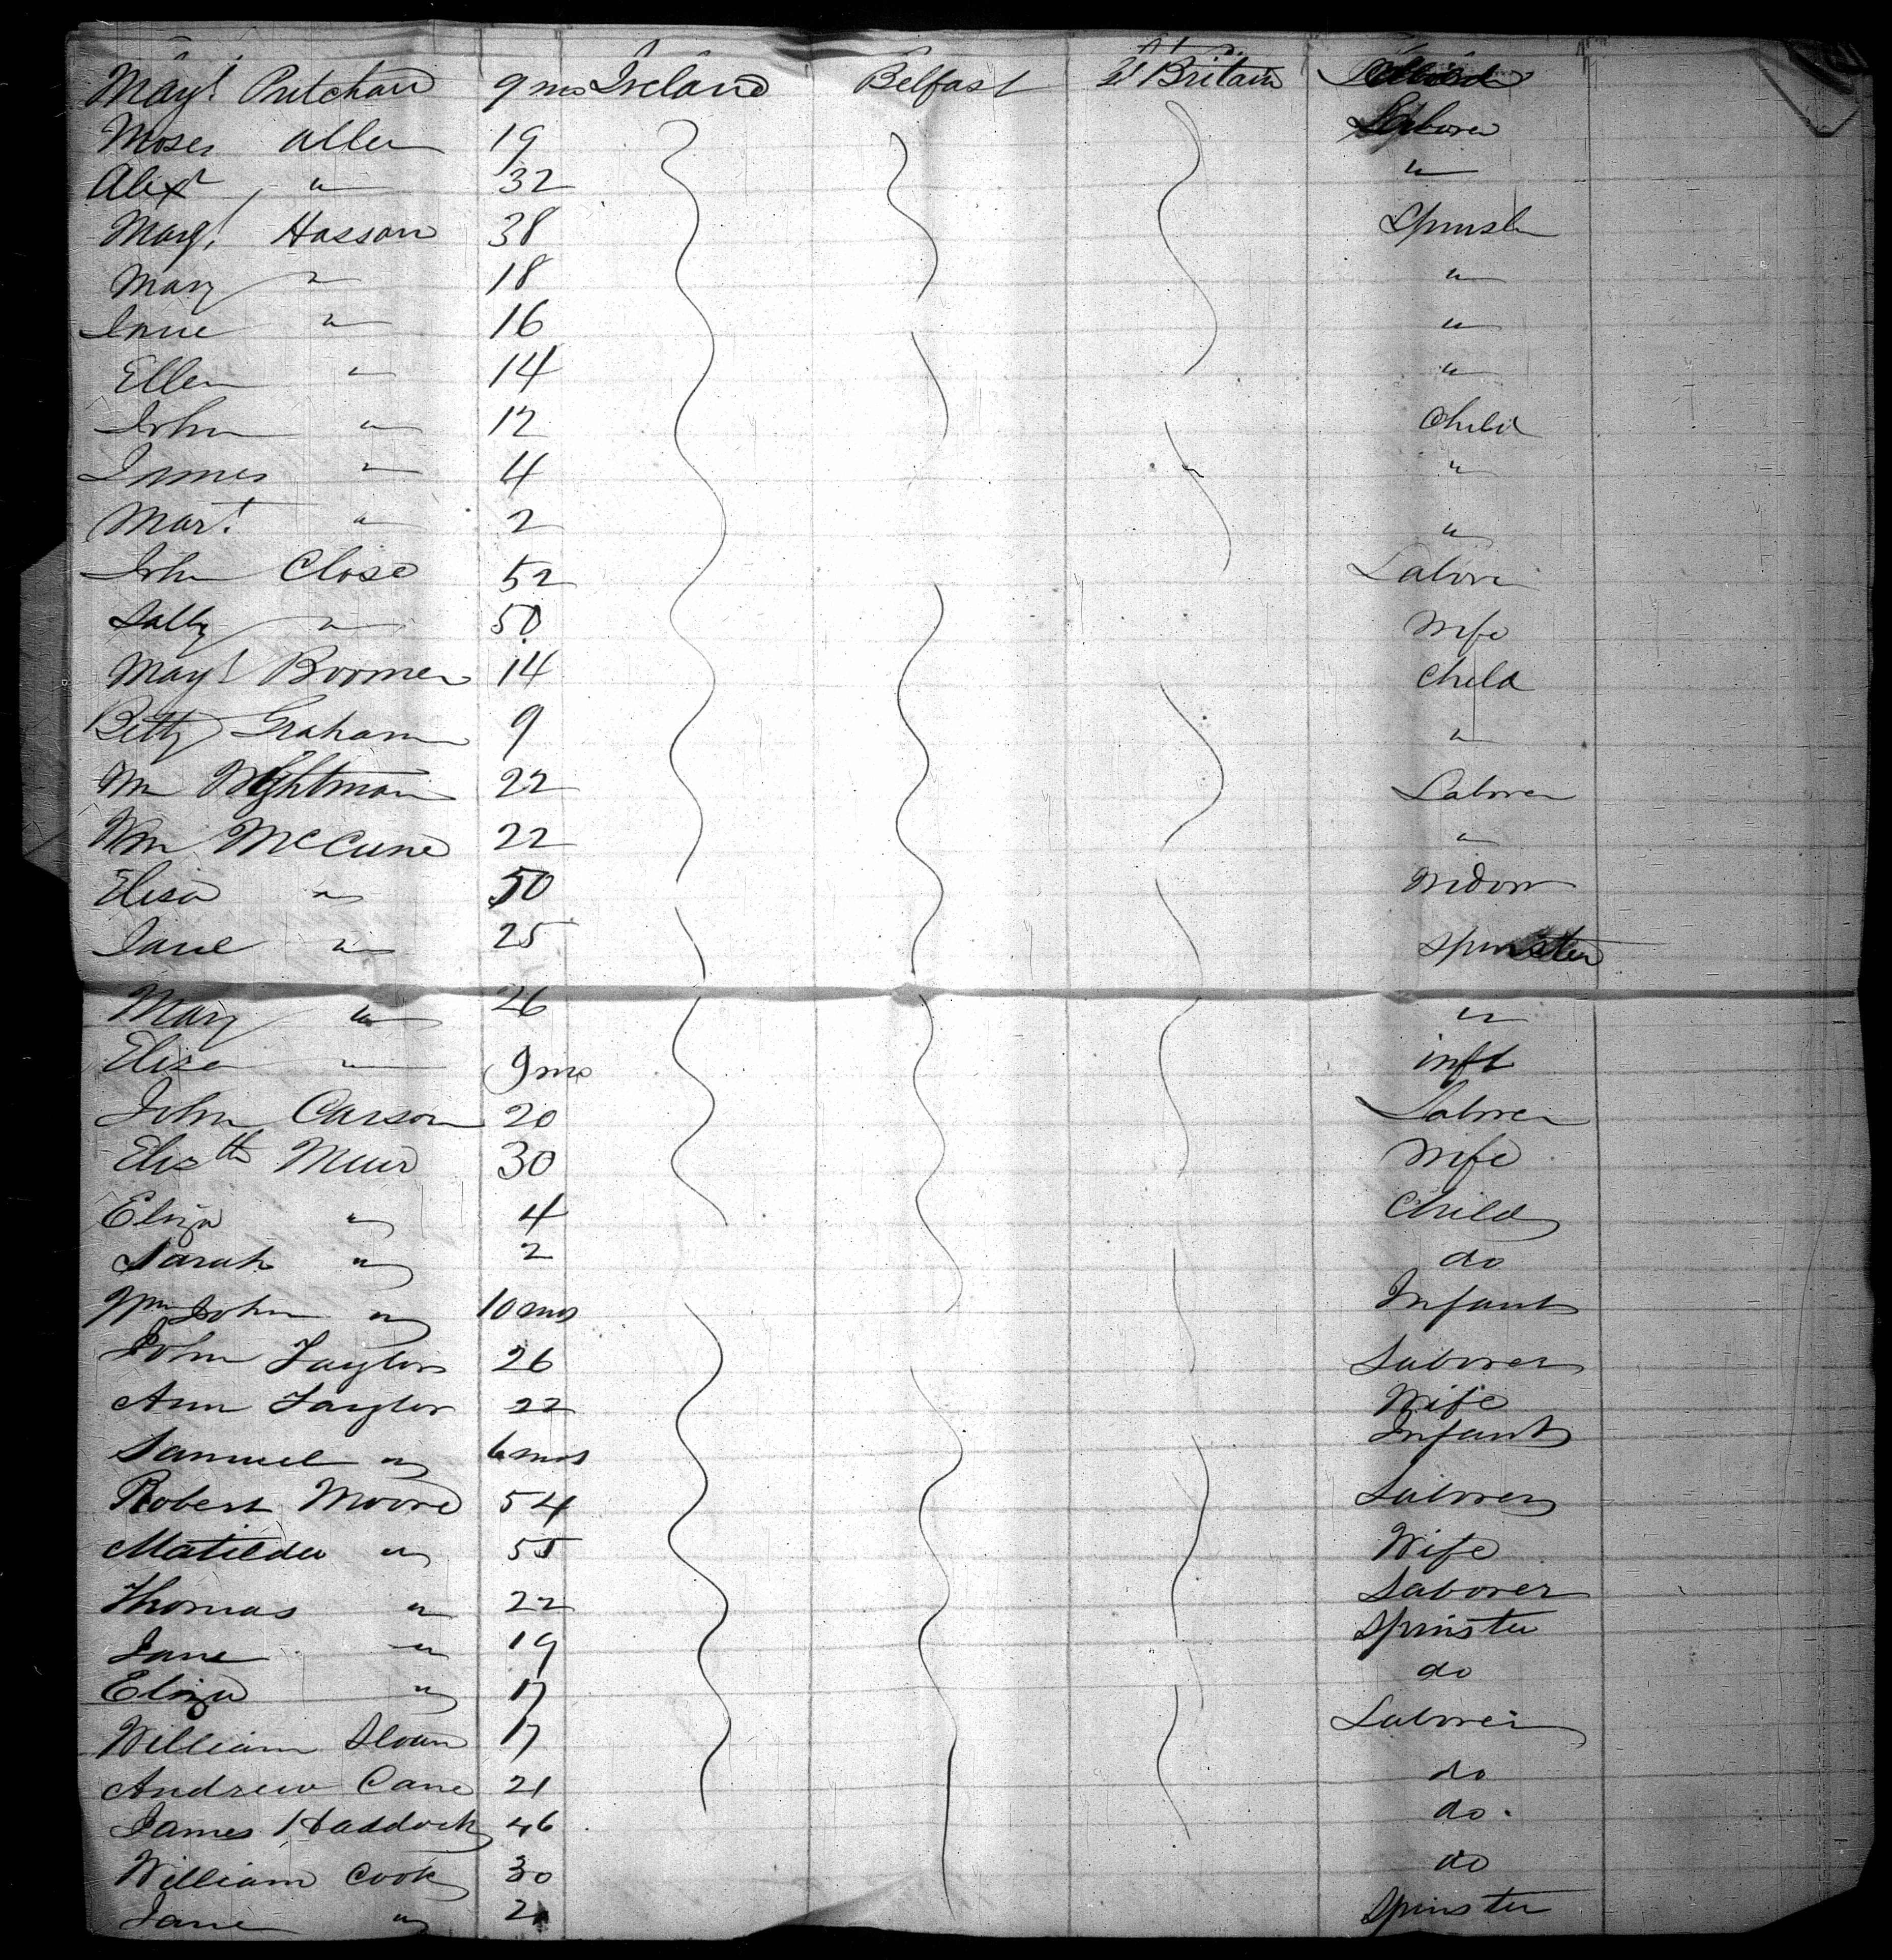 Magt Pritchard 9 mo Ireland Belfast Gt Britain
Moses Allen 19 Laborer
Alexr " 32 "
Margt Hasson 38 Spinster
Mary " 18 "
Jane " 16 "
Ellen " 14 "
John " 12 Child
James " 4 "
Mart " 2 "
John Close 52 Laborer
Sally " 50 Wife
Magt Boomer 14 Child
Betty Graham 9 "
Wm Wightman 22 Laborer
Wm McCune 22 "
Elisa " 50 Widow
Jane " 25 Spinster
Mary " 26 "
Elisa " 9 mo inft
John Carson 20 Laborer
Elizth Muir 30 Wife
Eliza " 4 Child
Sarah " 2 do
Wm John " 10 mos Infant
John Taylor 26 Laborer
Ann Taylor 22 Wife
Samuel " 6 mos Infant
Robert Moore 54 Laborer
Matilda " 55 Wife
Thomas " 22 Laborer
Jane " 19 Spinster
Eliza " 17 do
William Sloan 17 Laborer
Andrew Cane 21 do
James Haddock 46 do
William Cook 30 do
Jane " Spinster